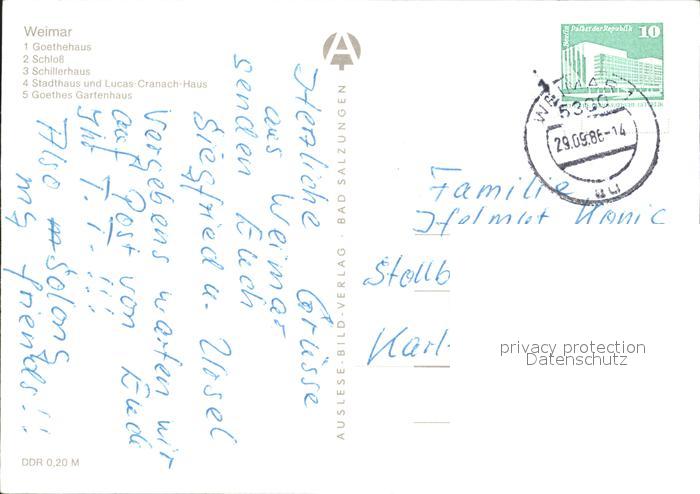 Weimar
1 Goethehaus
2 Schloß
3 Schillerhaus
4 Stadthaus und Lucas-Cranach-Haus
5 Goethes Gartenhaus
Herzliche Grüsse
aus Weimar
senden Euch
Siegfried u. Ursel
Vergebens warten wir
auf Post von Euch
!!! T. T. !!!
Also Solong
my friends!!
DDR 0,20 M
A
AUSLESE-BILD-VERLAG · BAD SALZUNGEN
Berlin Palast der Republik 10
WEIMAR 1
5300
29.09.86-14
au
Familie
Helmut König
Stollb
Karl-
privacy protection
Datenschutz